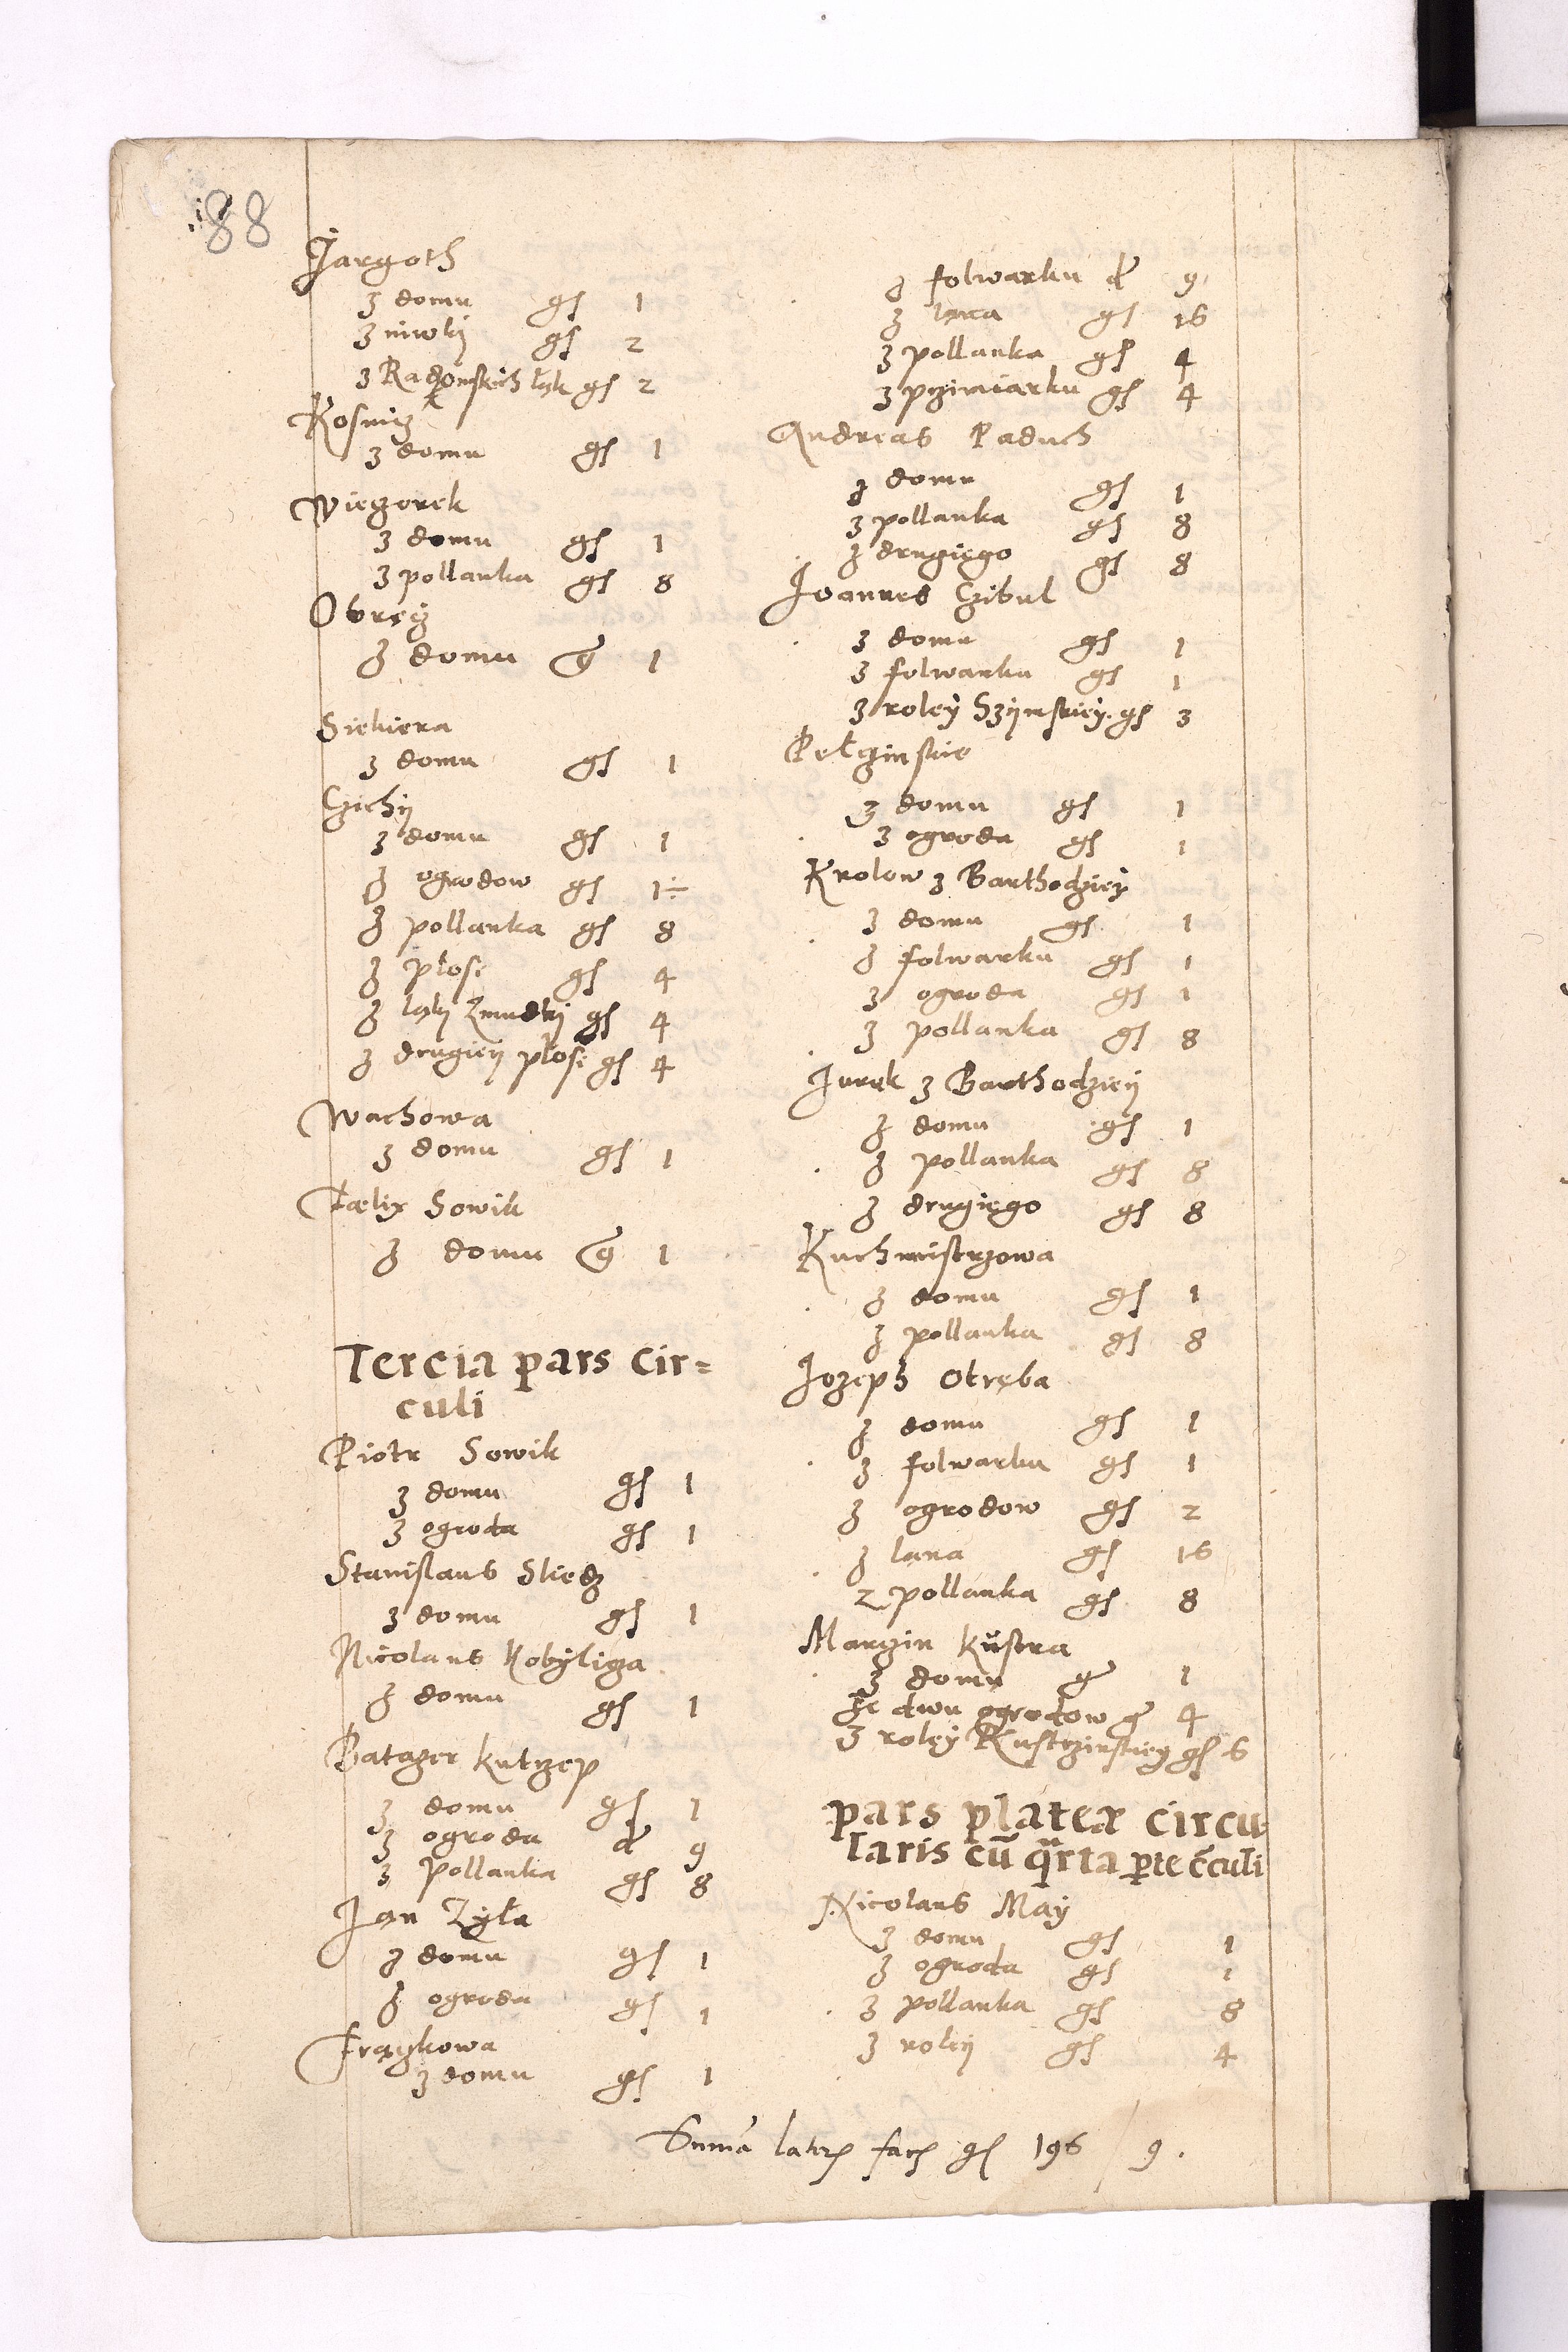 88
Jargoth
z domu gs 1
z niwki gs 2
z Radonskich łąk gs 2
Kosmiz
z domu gs 1
Wiegorek
z domu gs 1
z pollanka gs 8
Obręg
z domu g 1
Siekiera
z domu gs 1
Czichy
z domu gs 1
z ogrodow gs 1÷
z pollanka gs 8
z płosę gs 4
z łąki Zmudki gs 4
z drugiey płosę gs 4
Wachowa
z domu gs 1
Fælix Sowik
z domu g 1
Tercia pars cir=
culi
Piotr Sowik
z domu gs 1
z ogroda gs 1
Stanislaus Sledz
z domu gs 1
Nicolaus Kobyliga
z domu gs 1
Batzer Kutzep
z domu gs 1
z ogroda d 9
z pollanka gs 8
Jan Zyła
z domu gs 1
z ogroda gs 1
Frągkowa
z domu gs 1
z folwarku d 9
z lana gs 16
z pollanka gs 4
z przimiarku gs 4
Andreas Paduch
z domu gs 1
z pollanka gs 8
z drugiego gs 8
Joannes Czibul
z domu gs 1
z folwarku gs 1
z roley Szynskiey gs 3
Pełczinskie
z domu gs 1
z ogroda gs 1
Krolow z Barthodziey
z domu gs 1
z folwarku gs 1
z ogroda gs 1
z pollanka gs 8
Jurek z Barthodziey
z domu gs 1
z pollanka gs 8
z drugiego gs 8
Kuchmistrzowa
z domu gs 1
z pollanka gs 8
Jozeph Otręba
z domu gs 1
z folwarku gs 1
z ogrodow gs 2
z lana gs 16
z pollanka gs 8
Marczin Kustra
z domu g 1
Ze dwu ogrodow g 4
z roley Kustrzinskiey gs 6
pars plateæ circu
laris cū qrta pte cculi
Nicolaus May
z domu gs 1
z ogroda gs 1
z pollanka gs 8
z roley gs 4
Suma laters facs gs 196 / 9.